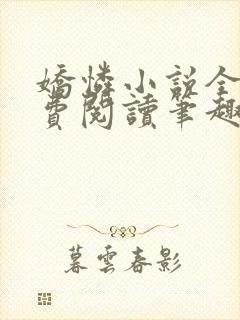 嬌憐小說全
費閱讀筆趣
暮雲春影